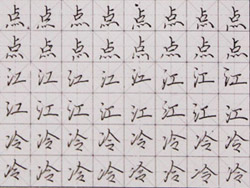 点点点点点点点点
点点点点点点点点
江江江江江江江江
江江江江江江江江
冷冷冷冷冷冷冷冷
冷冷冷冷冷冷冷冷